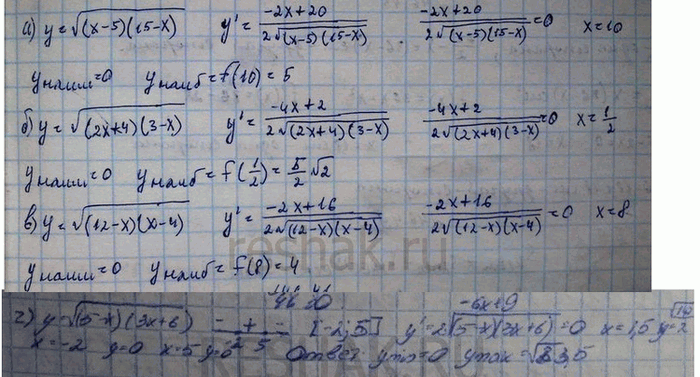 а) y = √(x-5)(15-x)   y' = -2x+20 / 2√(x-5)(15-x)   -2x+20 / 2√(x-5)(15-x) = 0   x = 10
yнаим = 0   yнаиб = f(10) = 5
б) y = √(2x+4)(3-x)   y' = -4x+2 / 2√(2x+4)(3-x)   -4x+2 / 2√(2x+4)(3-x) = 0   x = 1/2
yнаим = 0   yнаиб = f(1/2) = 5/2 √2
в) y = √(12-x)(x-4)   y' = -2x+16 / 2√(12-x)(x-4)   -2x+16 / 2√(12-x)(x-4) = 0   x = 8
yнаим = 0   yнаиб = f(8) = 4
reshak.ru
г) y = √(5-x)(3x+6)   - + -   [-2; 5]   y' = -6x+9 / 2√(5-x)(3x+6) = 0   x = 1,5
x = -2   y = 0   x = 5   y = 0   -2   5   Ответ